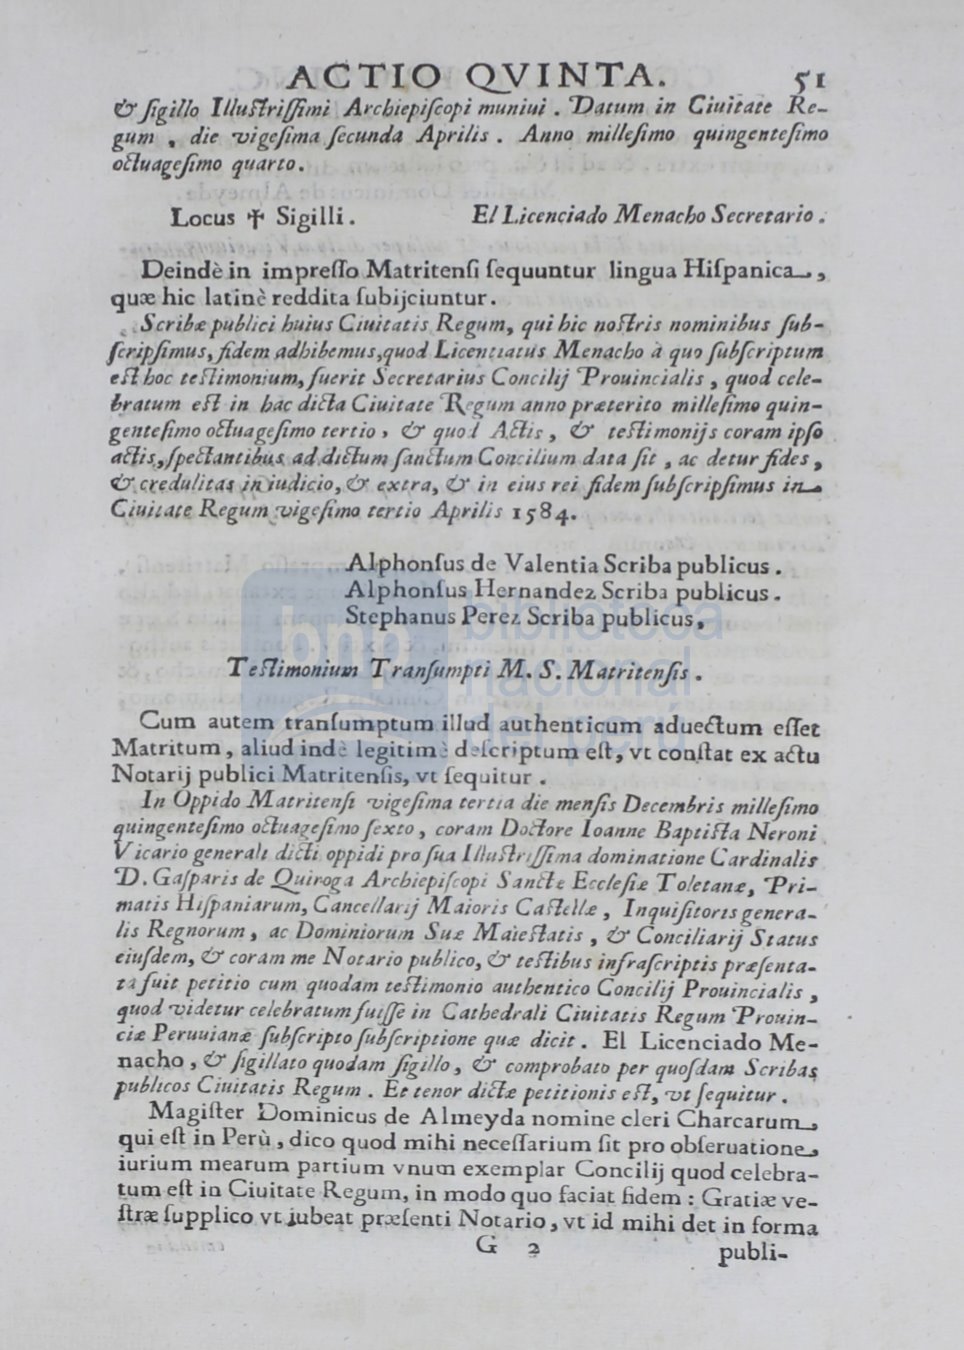 ACTIO QVINTA. 51
& ſigillo Illuſtriſſimi Archiepiſcopi muniui . Datum in Ciuitate Re-
gum , die vigeſima ſecunda Aprilis . Anno milleſimo quingenteſimo
octuageſimo quarto .
Locus ✝ Sigilli . El Licenciado Menacho Secretario .
Deindè in impreſſo Matritenſi ſequuntur lingua Hiſpanica ,
quæ hic latinè reddita ſubijciuntur .
Scribæ publici huius Ciuitatis Regum, qui hic noſtris nominibus ſub-
ſcripſimus, fidem adhibemus, quod Licentiatus Menacho à quo ſubſcriptum
eſt hoc teſtimonium, fuerit Secretarius Concilij Prouincialis , quod cele-
bratum eſt in hac dicta Ciuitate Regum anno præterito milleſimo quin-
genteſimo octuageſimo tertio , & quod Actis , & teſtimonijs coram ipſo
actis, ſpectantibus ad dictum ſanctum Concilium data ſit , ac detur fides ,
& credulitas in iudicio, & extra, & in eius rei fidem ſubſcripſimus in
Ciuitate Regum vigeſimo tertio Aprilis 1584.
Alphonſus de Valentia Scriba publicus .
Alphonſus Hernandez Scriba publicus .
Stephanus Perez Scriba publicus,
Teſtimonium Tranſumpti M. S. Matritenſis .
Cum autem tranſumptum illud authenticum aduectum eſſet
Matritum , aliud indè legitimè deſcriptum eſt, vt conſtat ex actu
Notarij publici Matritenſis, vt ſequitur .
In Oppido Matritenſi vigeſima tertia die menſis Decembris milleſimo
quingenteſimo octuageſimo ſexto , coram Doctore Ioanne Baptiſta Neroni
Vicario generali dicti oppidi pro ſua Illuſtriſſima dominatione Cardinalis
D. Gaſparis de Quiroga Archiepiſcopi Sanctæ Eccleſiæ Toletanæ, Pri-
matis Hiſpaniarum, Cancellarij Maioris Caſtellæ , Inquiſitoris genera-
lis Regnorum , ac Dominiorum Suæ Maieſtatis , & Conciliarij Status
eiuſdem, & coram me Notario publico, & teſtibus infraſcriptis præſenta-
ta fuit petitio cum quodam teſtimonio authentico Concilij Prouincialis ,
quod videtur celebratum fuiſſe in Cathedrali Ciuitatis Regum Prouin-
ciæ Peruuianæ ſubſcripto ſubſcriptione quæ dicit . El Licenciado Me-
nacho , & ſigillato quodam ſigillo , & comprobato per quoſdam Scribas
publicos Ciuitatis Regum . Et tenor dictæ petitionis eſt, vt ſequitur .
Magiſter Dominicus de Almeyda nomine cleri Charcarum ,
qui eſt in Perù , dico quod mihi neceſſarium ſit pro obſeruatione ,
iurium mearum partium vnum exemplar Concilij quod celebra-
tum eſt in Ciuitate Regum, in modo quo faciat fidem : Gratiæ ve-
ſtræ ſupplico vt iubeat præſenti Notario , vt id mihi det in forma
G 2 publi-
biblioteca
nacional
del perú
bnp